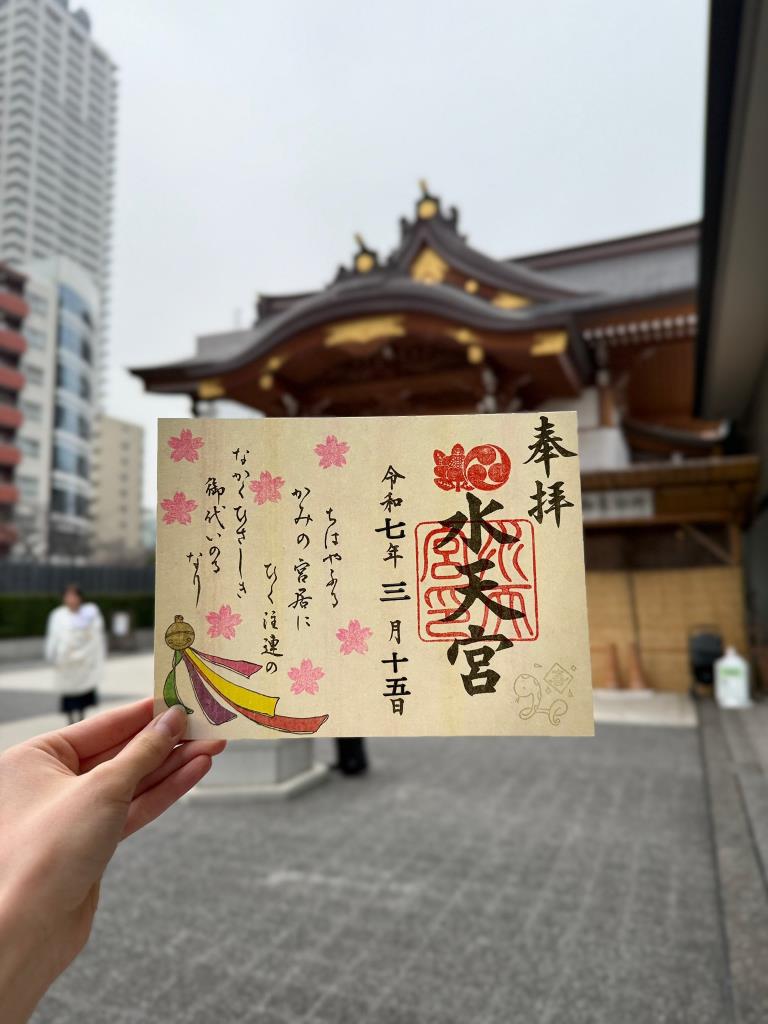 奉拝
水天宮
水天宮印
令和七年三月十五日
ちはやふる
かみの宮居に
ひく注連の
なかくひさしき
御代いのる
なり